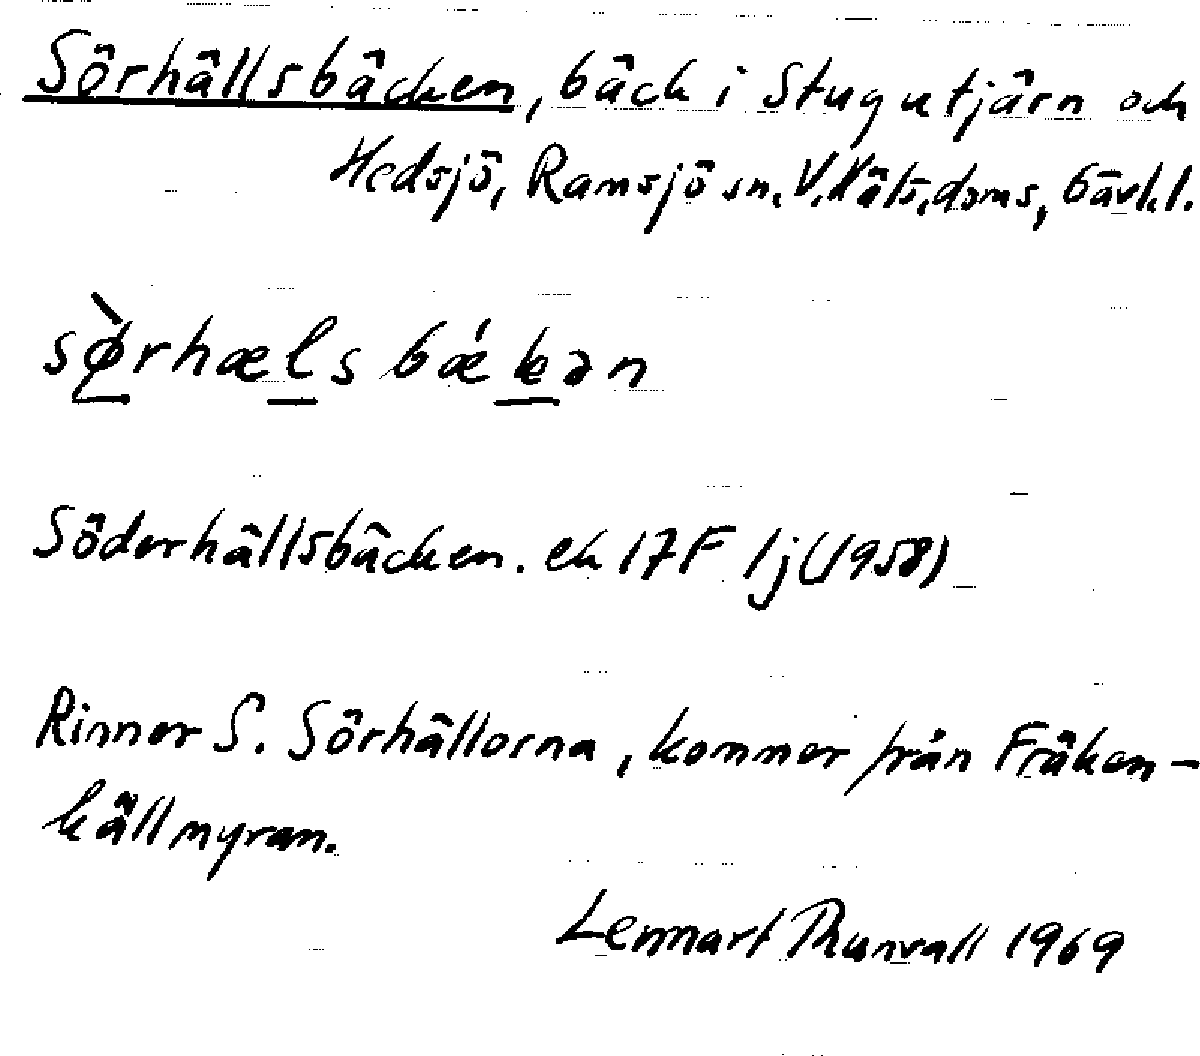 Sörhällsbäcken, bäck i Stugutjärn och
Hedsjö, Ramsjö sn, V. Häls. doms, Gävl. l.
sø̀rhæls bǽkən
Söderhällsbäcken. ek 17F 1j (1958)
Rinner S. Sörhällorna, kommer från Fräken-
källmyran.
Lennart Thunvall 1969